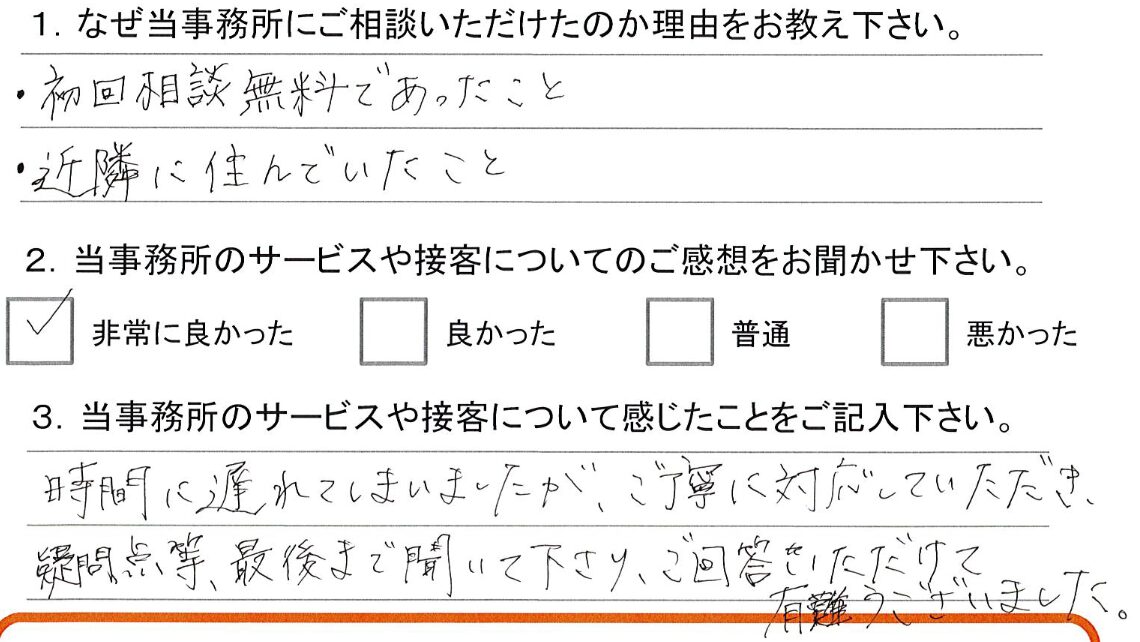 1. なぜ当事務所にご相談いただけたのか理由をお教え下さい。
・初回相談無料であったこと
・近隣に住んでいたこと
2. 当事務所のサービスや接客についてのご感想をお聞かせ下さい。
非常に良かった 良かった 普通 悪かった
3. 当事務所のサービスや接客について感じたことをご記入下さい。
時間に遅れてしまいましたが、ご丁寧に対応していただき、
疑問点等、最後まで聞いて下さり、ご回答をいただけて
有難うございました。